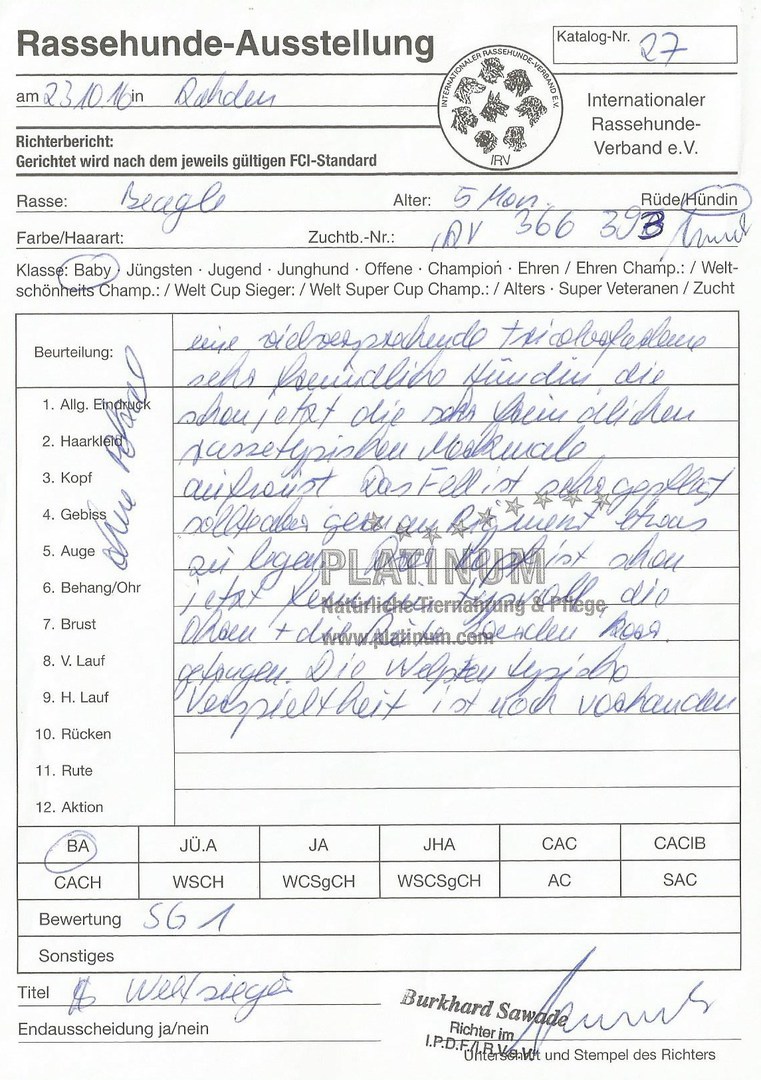 Rassehunde-Ausstellung
Katalog-Nr. 27
INTERNATIONALER RASSEHUNDE-VERBAND E.V.
IRV
am 23.10.16 in Rahden
Internationaler
Rassehunde-
Verband e.V.
Richterbericht:
Gerichtet wird nach dem jeweils gültigen FCI-Standard
Rasse: Beagle Alter: 5 Mon. Rüde/Hündin
Farbe/Haarart: Zuchtb.-Nr.: IRV 366 393
Klasse: Baby · Jüngsten · Jugend · Junghund · Offene · Champion · Ehren / Ehren Champ.: / Welt-
schönheits Champ.: / Welt Cup Sieger: / Welt Super Cup Champ.: / Alters · Super Veteranen / Zucht
Beurteilung:
eine vielversprechende tricolorfarbene
sehr freundliche Hündin die
schon jetzt die sehr freundlichen
rassetypischen Merkmale
aufweist Das Fell ist sehr gepflegt
sollte aber an Pigment etwas
zu legen Der Kopf ist schon
jetzt typvoll die
Ohren + die Rute werden korr.
getragen. Die Welpen typische
Verspieltheit ist noch vorhanden
1. Allg. Eindruck
2. Haarkleid
3. Kopf
4. Gebiss
5. Auge
6. Behang/Ohr
7. Brust
8. V. Lauf
9. H. Lauf
10. Rücken
11. Rute
12. Aktion
PLATINUM
Natürliche Tiernahrung & Pflege
www.platinum.com
BA JÜ.A JA JHA CAC CACIB
CACH WSCH WCSgCH WSCSgCH AC SAC
Bewertung SG 1
Sonstiges
Titel Weltsieger
Endausscheidung ja/nein
Burkhard Sawade
Richter im
I.P.D.F./I.R.V.e.V.
Unterschrift und Stempel des Richters